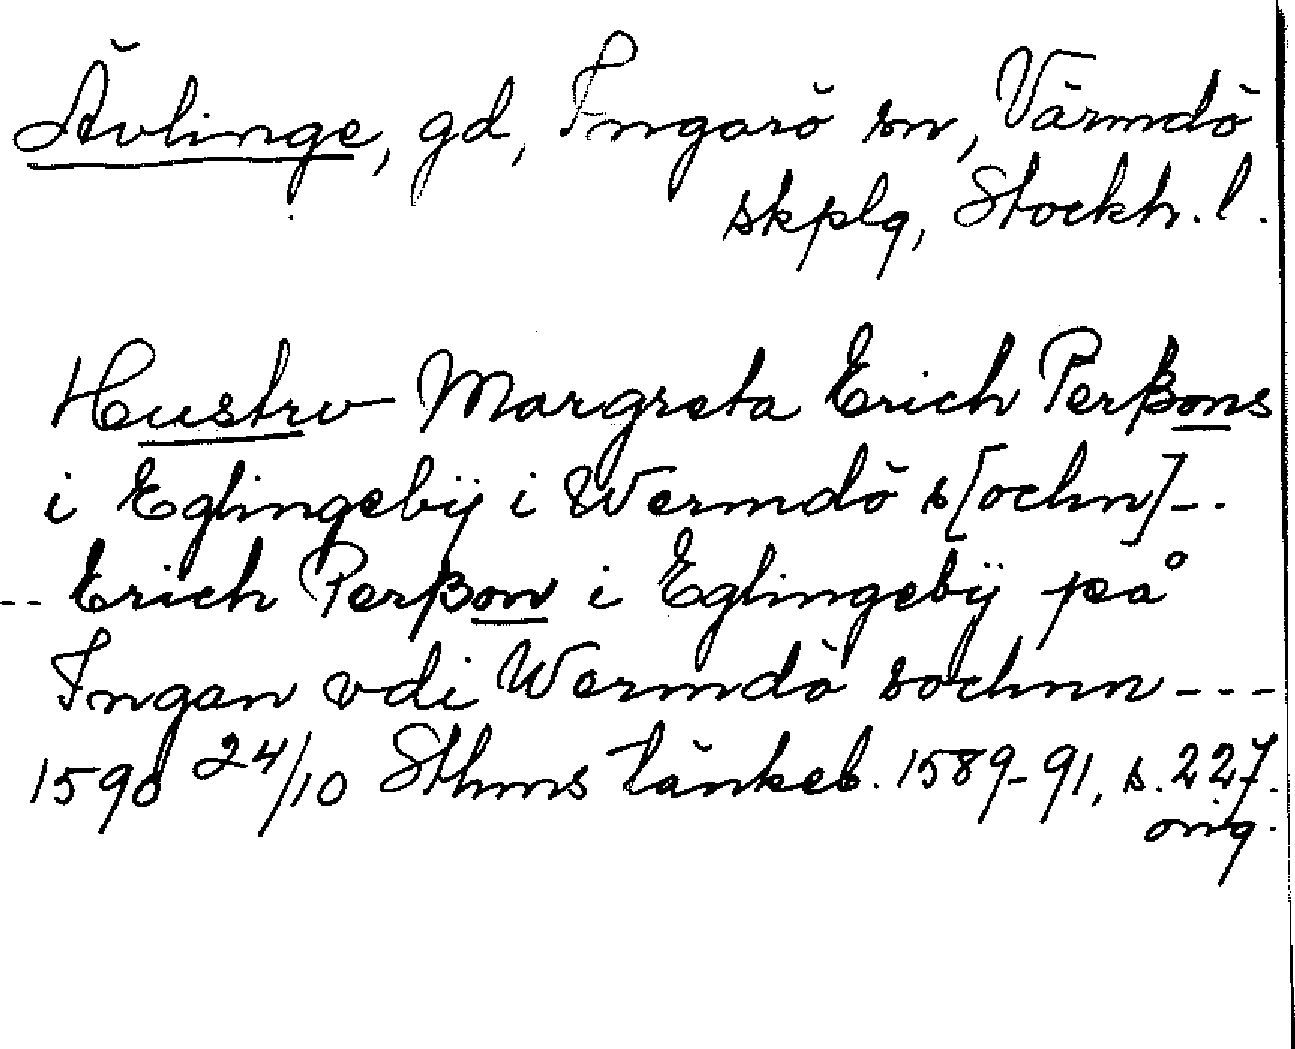 Ävlinge, gd, Ingarö sn, Värmdö
skplg, Stockh. l.
Hustrv Margreta Erich Perßons
i Eglingebÿ i Wermdö s[ochn]--.
-- Erich Perßon i Eglingebÿ på
Ingan vdi Wermdö sochnn ---
1590 24/10 Sthms tänkeb. 1589-91, s. 227.
orig.